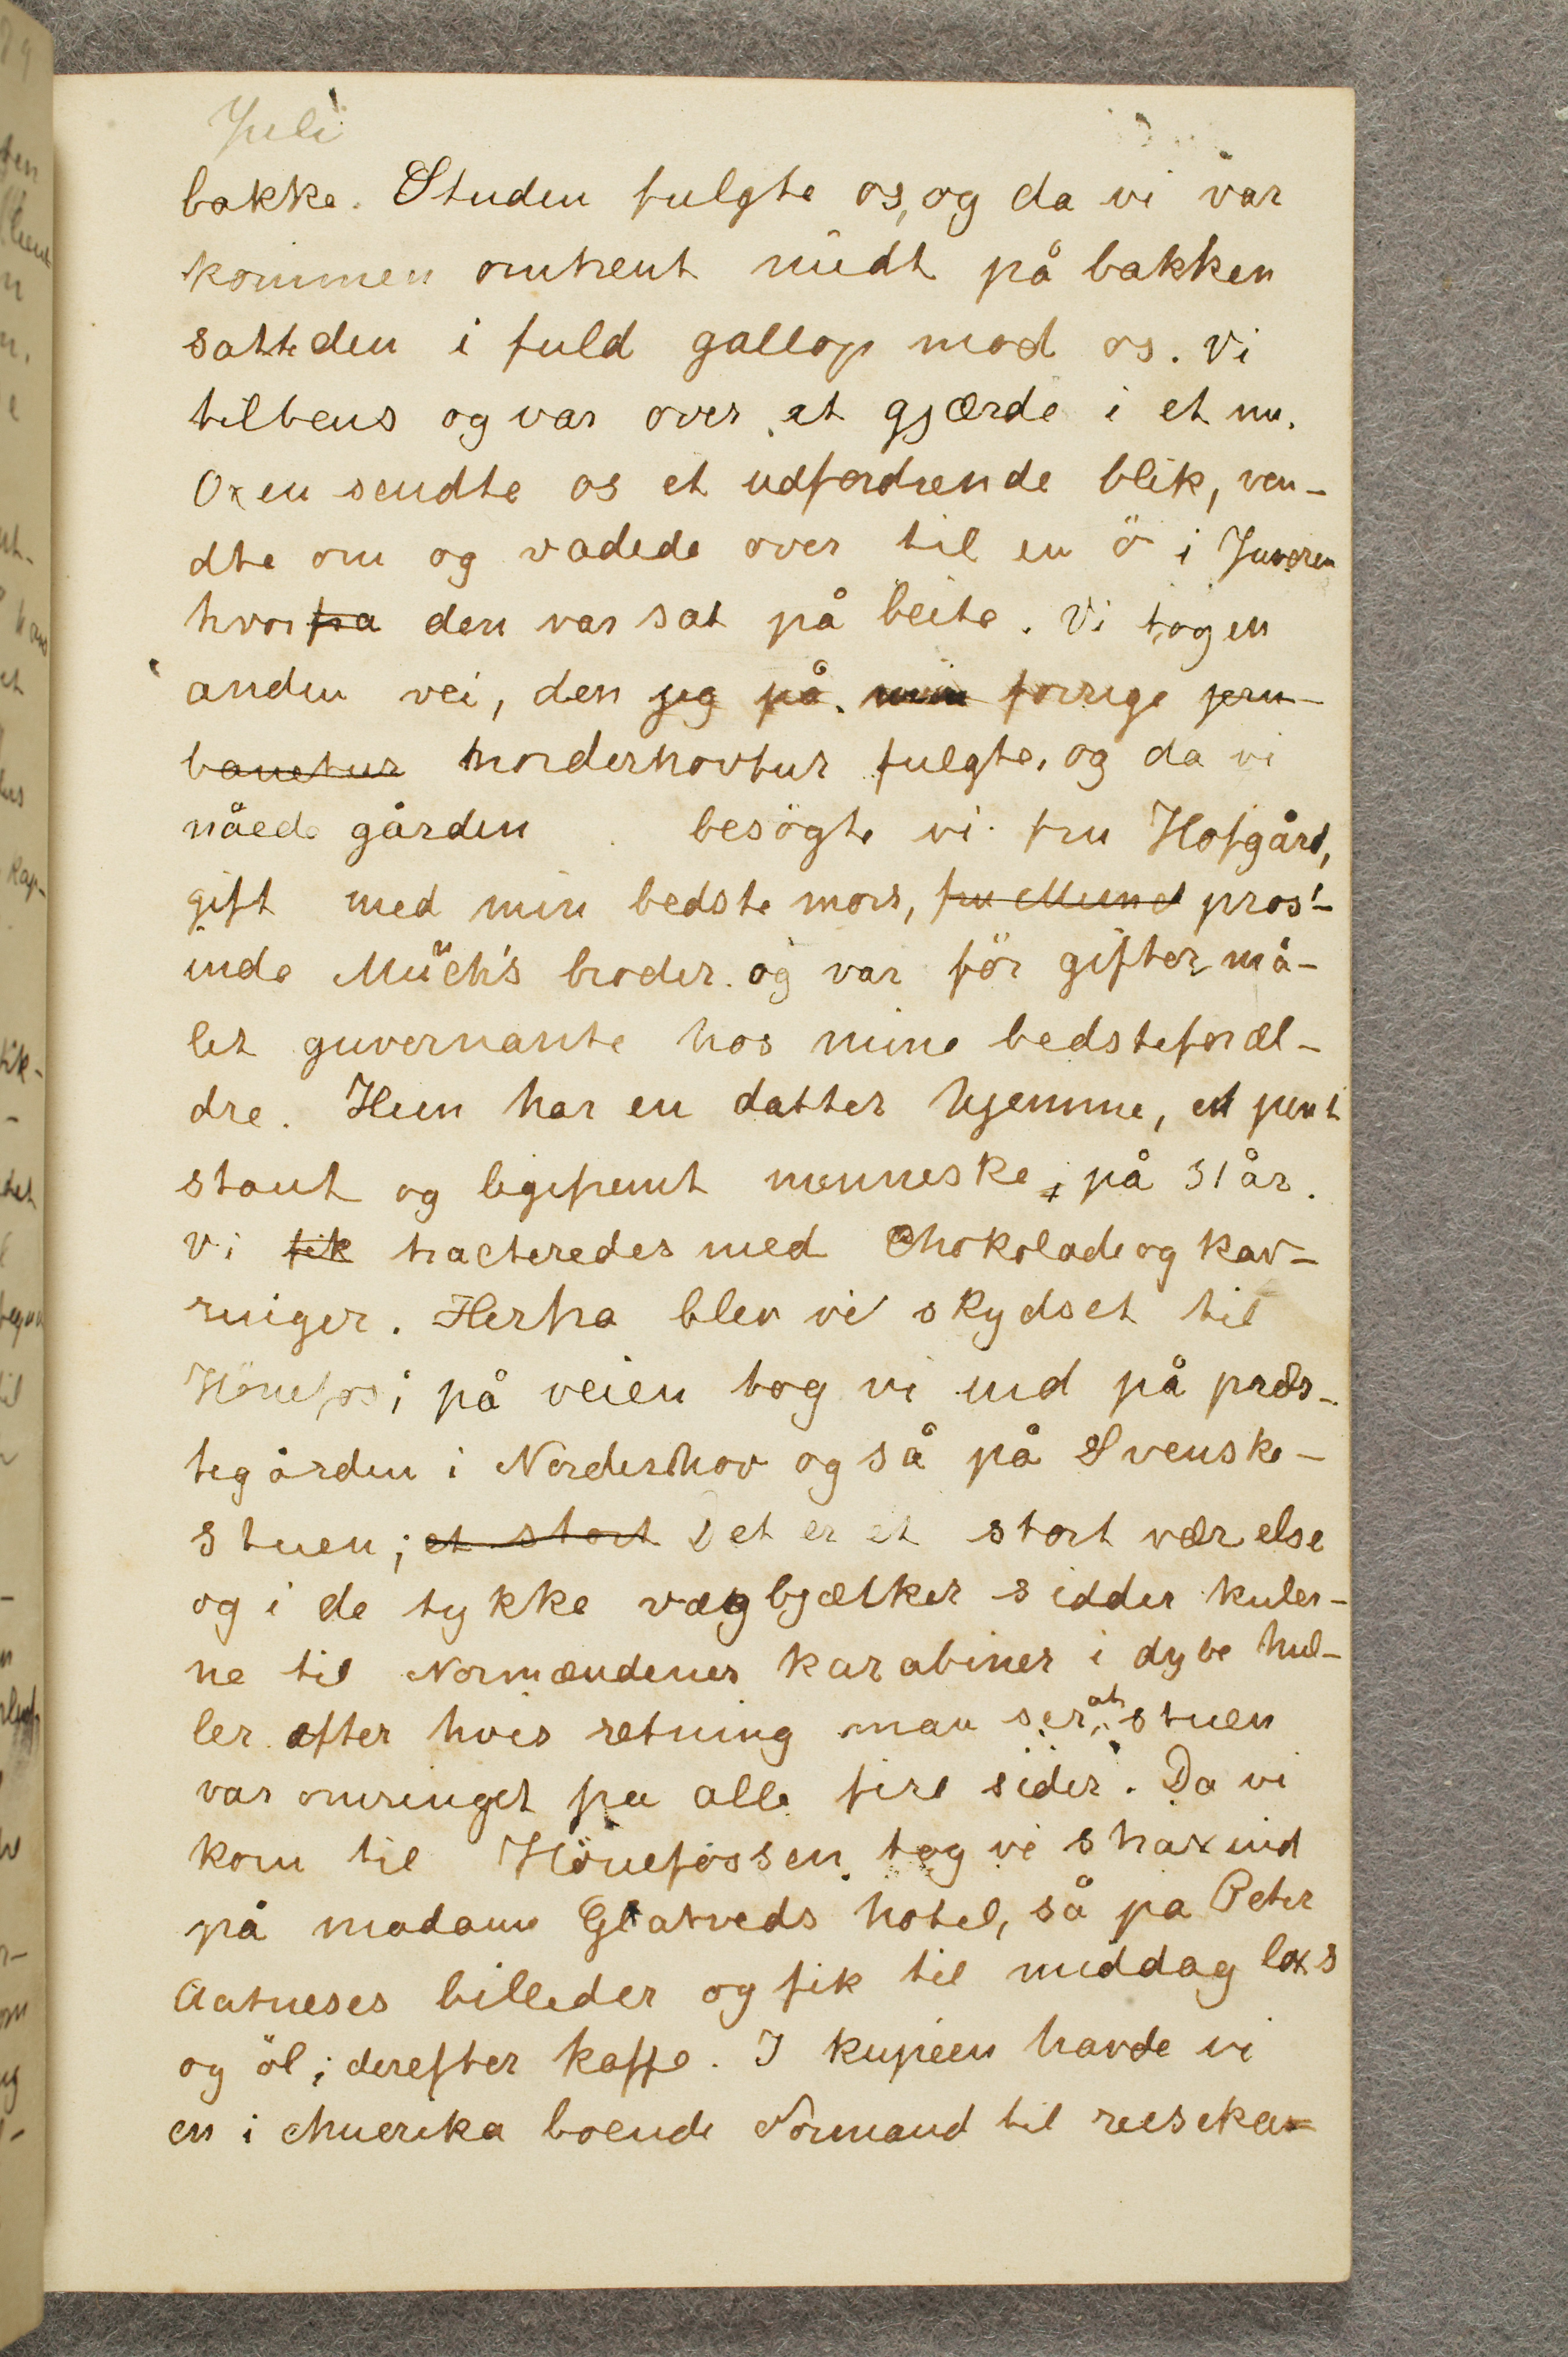 Juli
bakke. Studen fulgte os, og da vi var
kommen omtrent midt på bakken
satte den i fuld gallop mod os. Vi
tilbens og var over et gjærde i et nu.
Oxen sendte os et udfordrende blik, ven-
dte om og vadede over til en ö i Juveren
hvor fra den var sat på beite. Vi tog en
anden vei, den jeg på min forrige jern-
banetur Norderhovtur fulgte, og da vi
nåede gården besögte vi fru Hofgård,
gift med min bedste mors, fru Munch pros-
inde Münch's broder og var för giftermå-
let guvernante hos mine bedsteforæl-
dre. Hun har en datter hjemme, et pent
staut og ligefremt menneske, på 31 år.
Vi fik tracteredes med Chokolade og kav-
ringer. Herfra blev vi skydset til
Hönefos; på veien tog vi ind på præs-
tegården i Norderhov og så på Svenske-
stuen; et stort Det er et stort værelse
og i de tykke vægbjælker sidder kuler-
ne til Normændenes karabiner i dybe hul-
ler efter hvis retning man ser at stuen
var omringet fra alle fire sider. Da vi
kom til Hönefossen tog vi strax ind
på madam Glatveds hotel, så på Peter
Aatneses billeder og fik til middag lax
og öl; derefter kaffe. I kupéen havde vi
en i Amerika boende Normand til reiseka-